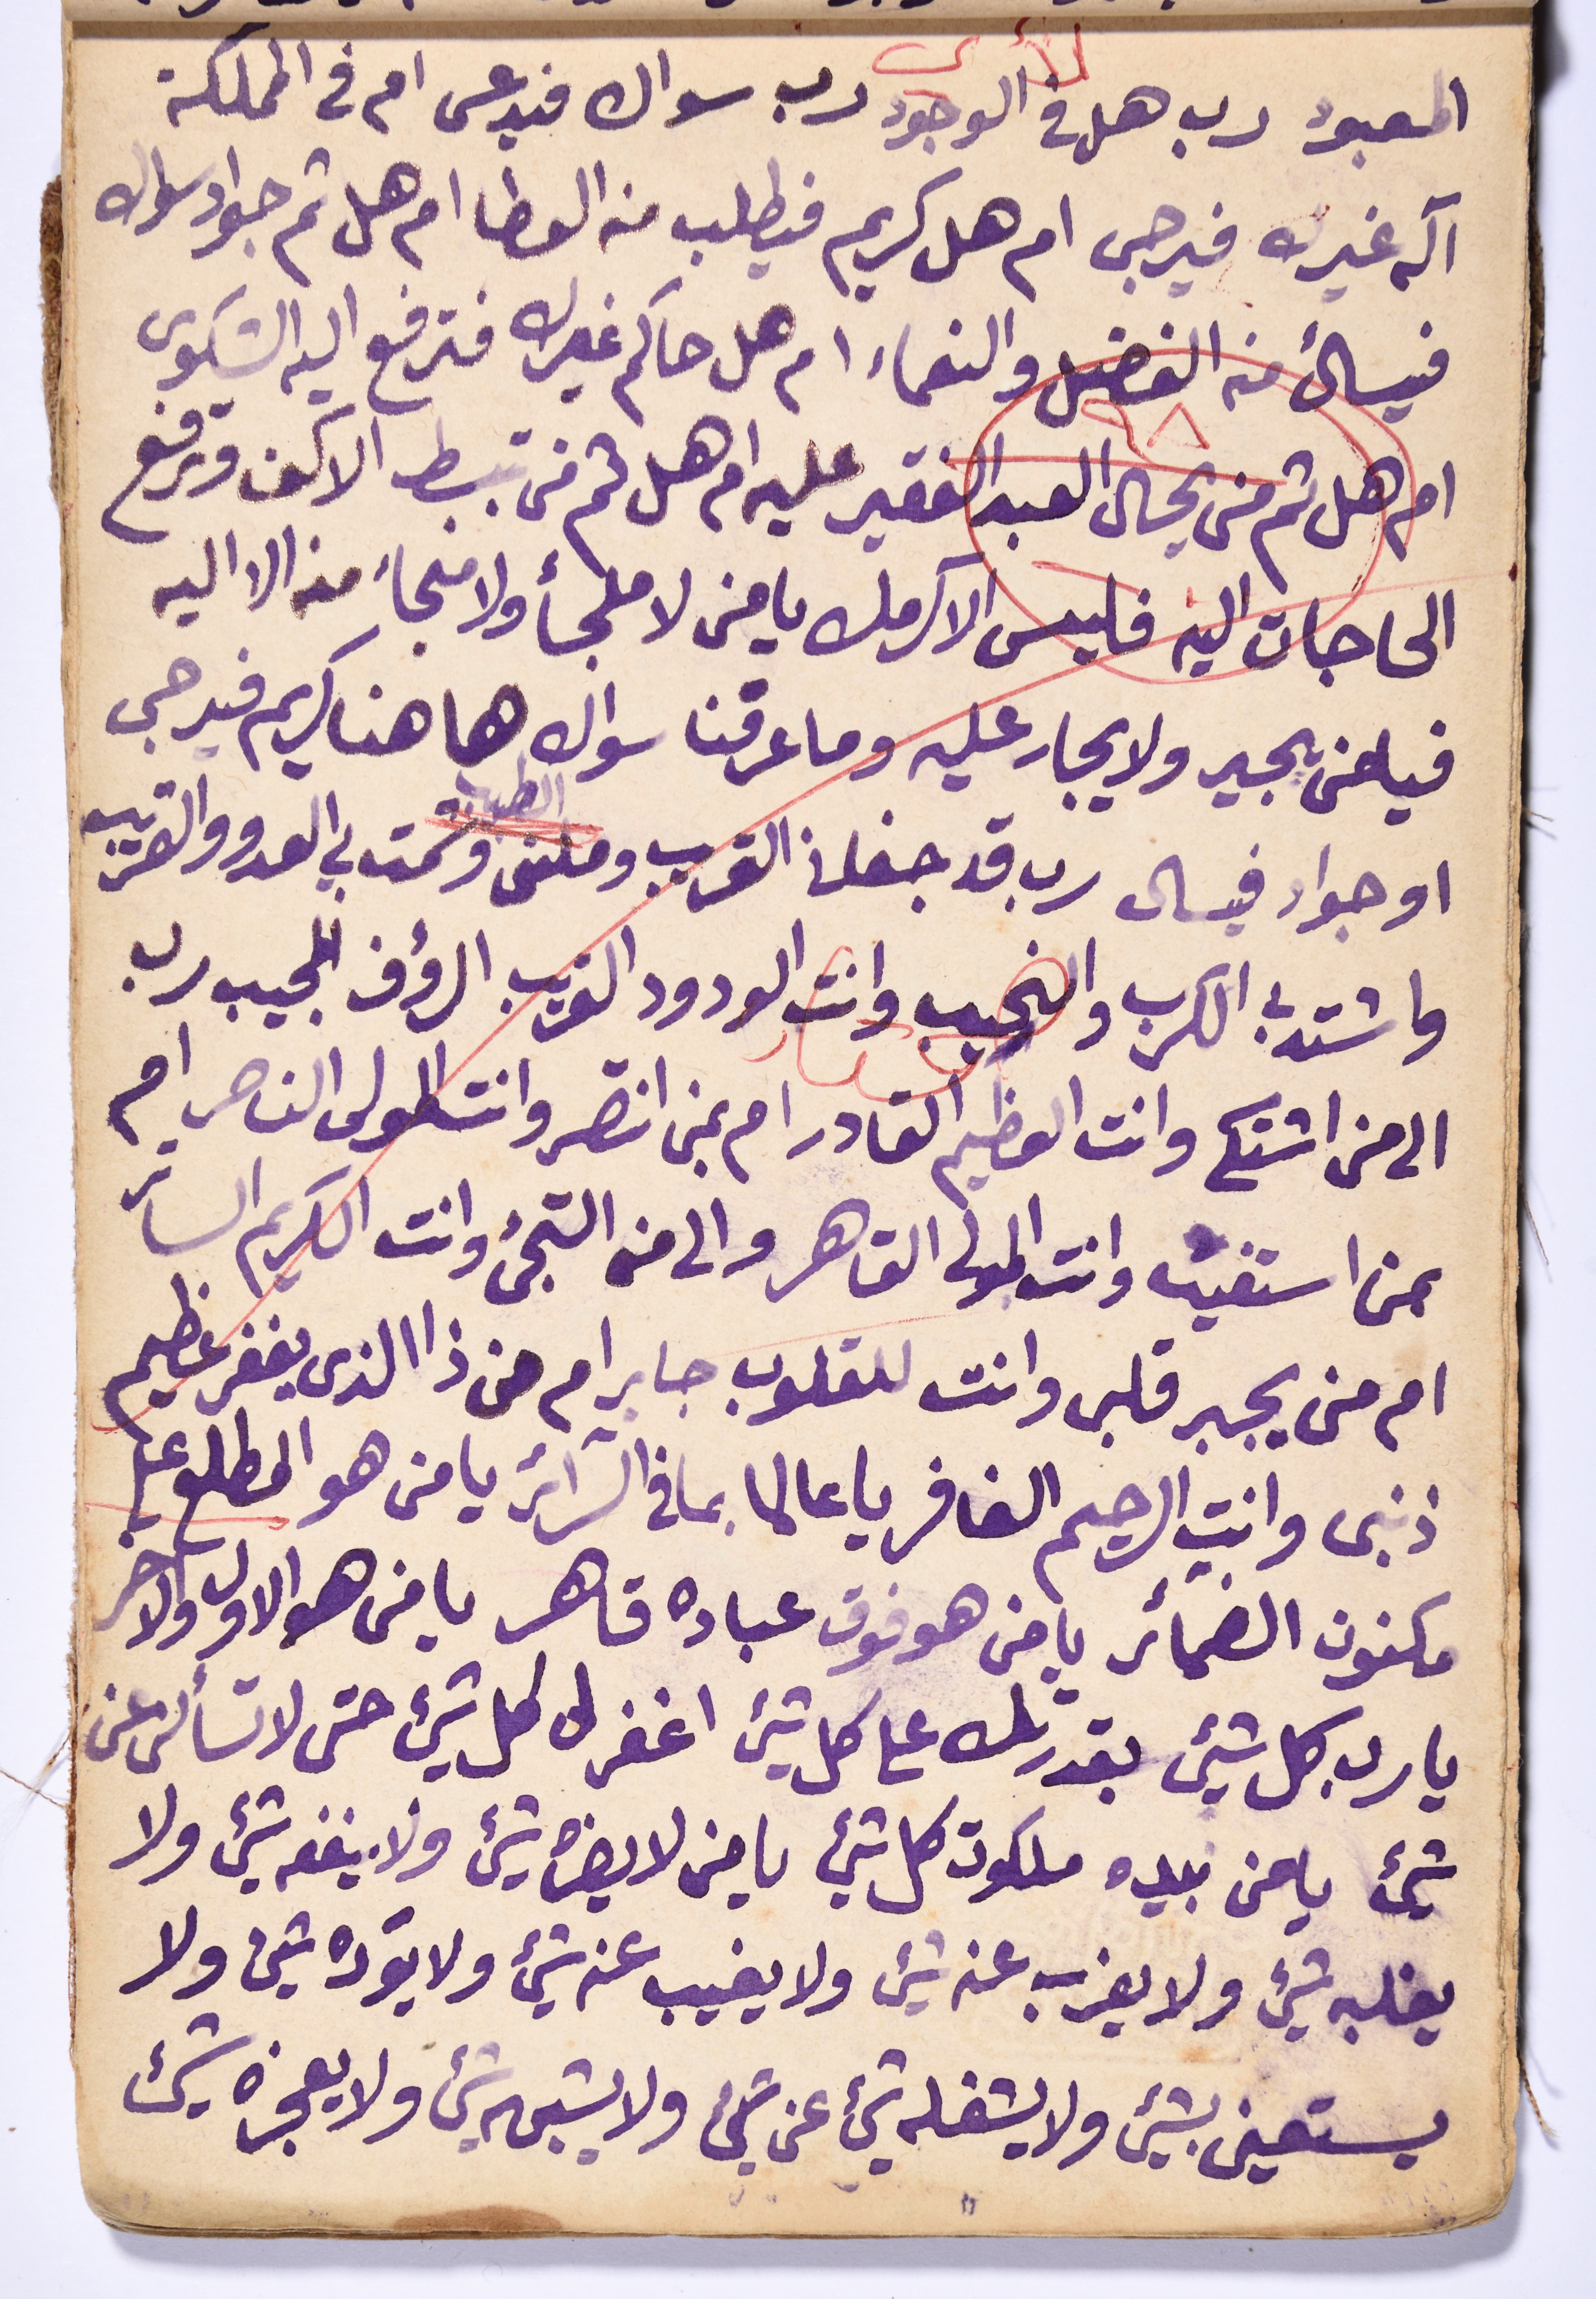 المعبود رب هل في الوجود رب سواك فيدعى ام في المملكة
آله غيرك فيرجى ام هل كريم فيطلب منه العطا ام هل ثم جواد سواك
فيسائ منه الفضل والنعماء ام هل حاكم غيرك فترفع اليه الشكوى
ام هل ثم من يحال العبد الفقير عليه ام هل ثم من تبسط الاكف وترفع
الحاجات اليه فليس الا كرمك يا من لا ملجأ ولا منجاء منه الا اليه
فيامن يجير ولا يجار عليه وما عرفنا سواك ها هنا كريم فيرجى
او جواد فيسال رب قد جفاني القرب وملني الطبيب وشمت بي العدو والقريب
واشتد بي الكرب والنحيب وانت الودود القريب الرؤف المجيب رب
الى من اشتكي وانت العظيم القادر ام بمن انتصر وانت المولى الناصر ام
بمن استغيث وانت المولى القاهر والى من التجئ وانت الكريم الساتر
ام من يجبر قلبي وانت للقلوب جابر ام من ذا الذى يغفر عظيم
ذنبى وانت الرحيم الغافر يا عالما بما في السرائر يا من هو المطلع على
مكنون الضمائر يا من هو فوق عباده قاهر يا من هو الاول والاخر
يا رب كل شيئ بقدرتك على كل شيئ اغفر لى كل شيئ حتى لا تسألنى عن
شيئ يا من بيده ملكوت كل شيئ يا من لا يضره شيئ ولا ينفعه شيئ ولا
يغلبه شيئ ولا يعزب عنه شيئ ولا يغيب عنه شيئ ولا يؤده شيئ ولا
يستعين بشيئ ولا يشغله شيئ عن شيئ ولا يشبهه شيئ ولا يعجزه شيئ